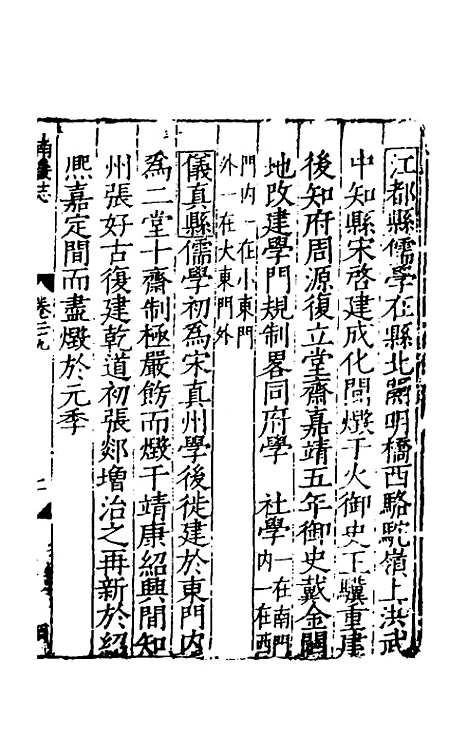 江都縣儒學在縣北開明橋西駱駝嶺上洪武
中知縣宋啓建成化間燬于火御史王驥重建
後知府周源復立堂齋嘉靖五年御史戴金闢
地改建學門規制畧同府學　社學一在南門内一在西
門内一在小東門
外一在大東門外
儀真縣儒學初爲宋真州學後徙建於東門内
爲二堂十齋制極嚴飭而燬于靖康紹興間知
州張好古復建乾道初張郯增治之再新於紹
熙嘉定間而盡燬於元季
卷三九